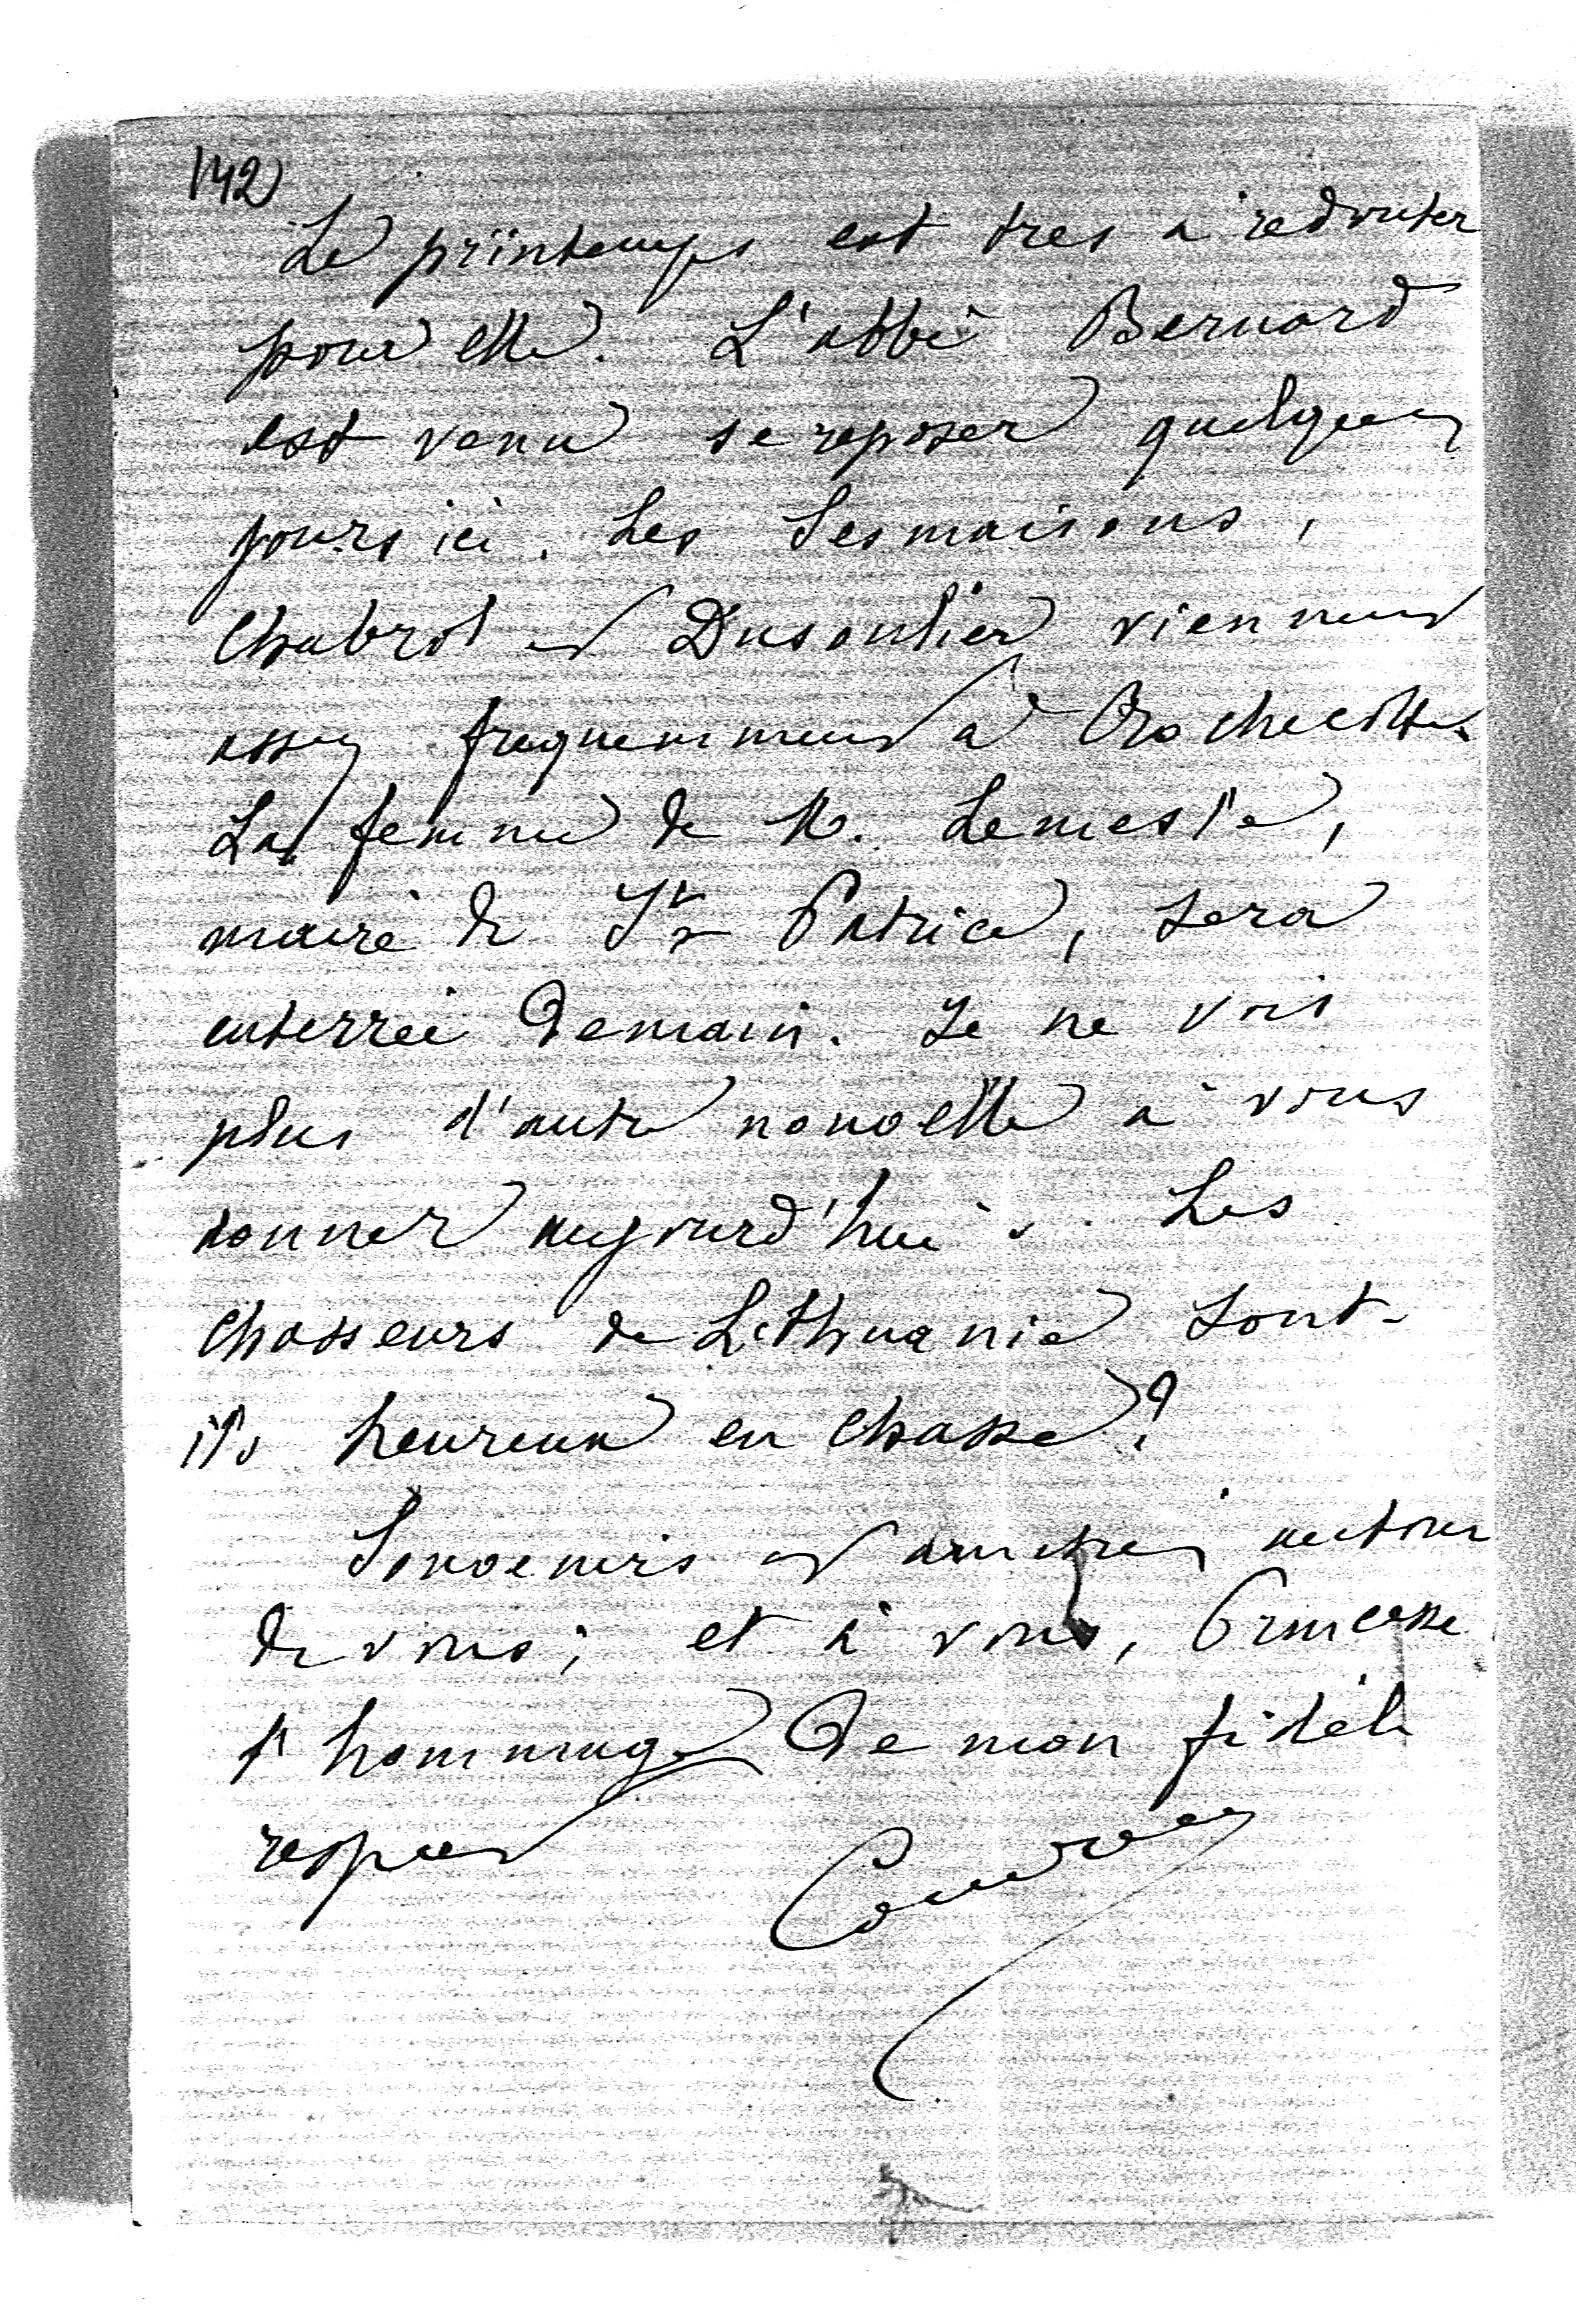 142
Le printemps est tres à redouter
pour elle. L'abbé Bernard
est venu se reposer quelques
jours ici. Les Sesmaisons,
Chabrol et Dusoulier viennent
assez frequemment à Rochecotte.
La femme de M. Lemesle,
maire de St Patrice, sera
enterrée demain. Je ne vois
plus d'autre nouvelle à vous
donner aujourd'hui. Les
chasseurs de Lithuanie sont-
ils heureux en chasse?
Souvenirs et amitiés autour
de vous; et à vous, Princesse
l'hommage de mon fidèle
respect